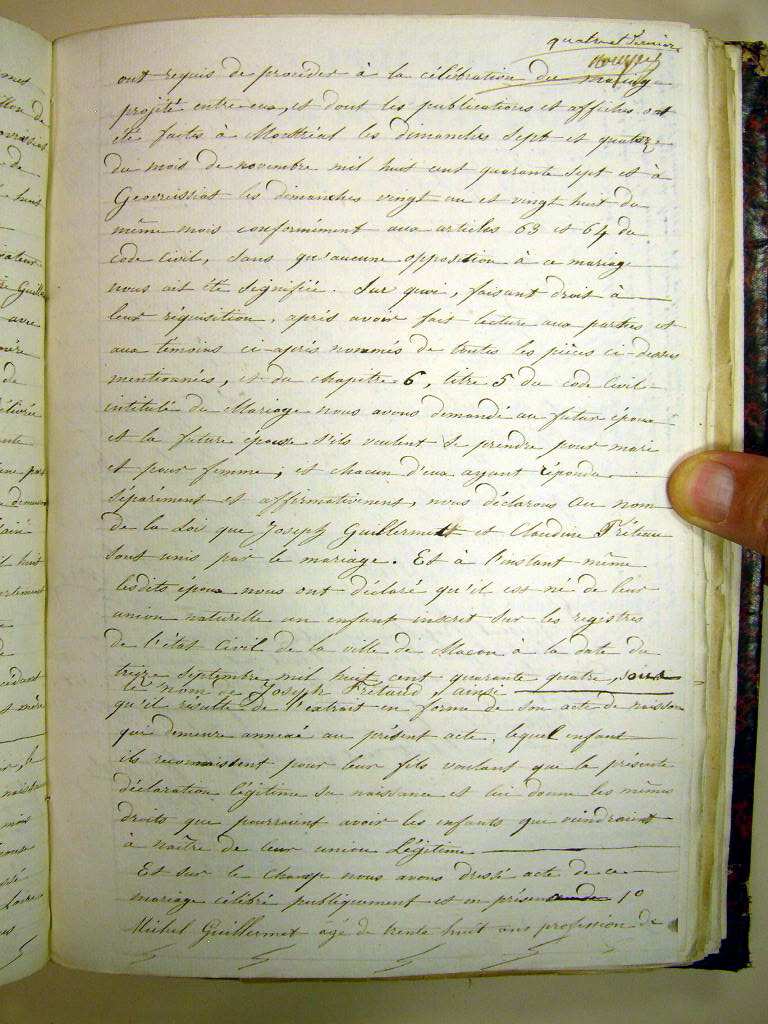 quatre et dernier
ont requis de procéder à la célébration du mariage
projeté entre eux, et dont les publications et affiches ont
été faites à Montréal les dimanches sept et quatorze
du mois de novembre mil huit cent quarante sept et à
Geovreissiat les dimanches vingt un et vingt huit du
même mois conformément aux articles 63 et 64 du
code Civil, sans qu'aucune opposition à ce mariage
nous ait été signifiée. Sur quoi, faisant droit à
leur réquisition, après avoir fait lecture aux parties et
aux témoins ci-après nommés de toutes les pièces ci-dessus
mentionnées, et du chapitre 6, titre 5 du code Civil
intitulé du Mariage nous avons demandé au futur époux
et la future épouse s'ils veulent se prendre pour mari
et pour femme; et chacun d'eux ayant répondu
séparément et affirmativement, nous déclarons au nom
de la Loi que Joseph Guillermet et Claudine Frétaud
sont unis par le mariage. Et à l'instant même
lesdits époux nous ont déclaré qu'il est né de leur
union naturelle un enfant inscrit sur les registres
de l'état Civil de la ville de Macon à la date du
treize septembre mil huit cent quarante quatre, sous
le nom de Joseph Frétaud, ainsi
qu'il résulte de l'extrait en forme de son acte de naissance
qui demeure annexé au présent acte, lequel enfant
ils reconnaissent pour leur fils voulant que la présente
déclaration légitime sa naissance et lui donne les mêmes
droits que pourraient avoir les enfants qui viendraient
à naître de leur union légitime
Et sur le champ nous avons dressé acte de ce
mariage célébré publiquement et en présence de 1º
Michel Guillermet agé de trente huit ans profession de